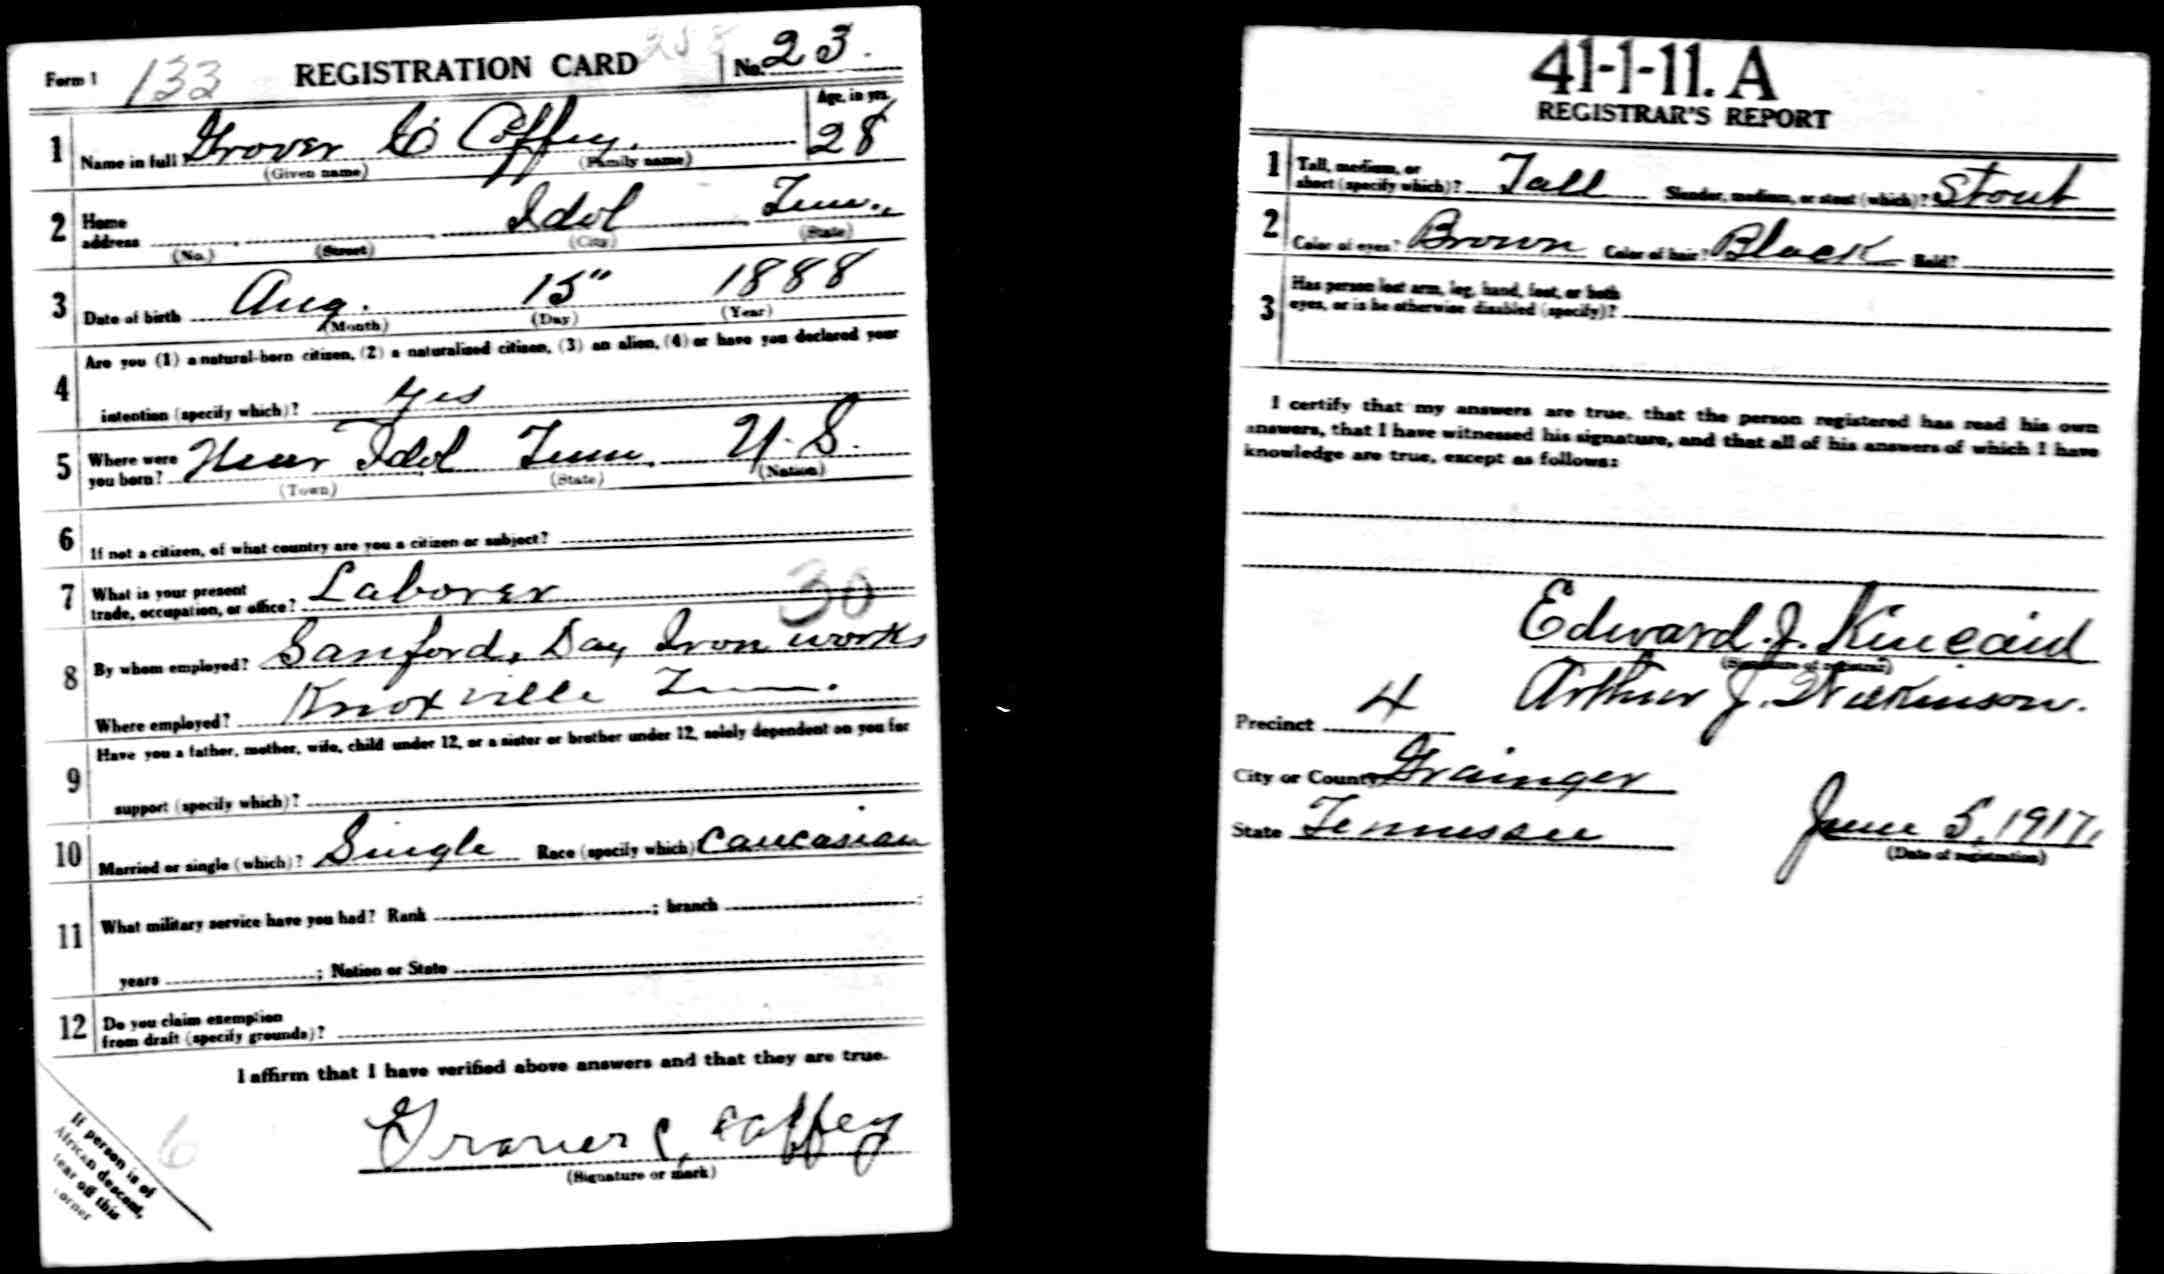 Form 1 133 REGISTRATION CARD 258 No. 23.
1 Name in full? Grover C Coffey. Age, in yrs. 28
(Given name) (Family name)
2 Home address Idol Tenn.,
(No.) (Street) (City) (State)
3 Date of birth Aug. 15" 1888
(Month) (Day) (Year)
4 Are you (1) a natural-born citizen, (2) a naturalized citizen, (3) an alien, (4) or have you declared your
intention (specify which)? Yes
5 Where were you born? Near Idol Tenn, U. S.
(Town) (State) (Nation)
6 If not a citizen, of what country are you a citizen or subject?
7 What is your present trade, occupation, or office? Laborer 30
8 By whom employed? Sanford, Day Iron works
Where employed? Knoxville Tenn.
9 Have you a father, mother, wife, child under 12, or a sister or brother under 12, solely dependent on you for
support (specify which)?
10 Married or single (which)? Single Race (specify which) Caucasian
11 What military service have you had? Rank ; branch
years ; Nation or State
12 Do you claim exemption
from draft (specify grounds)?
I affirm that I have verified above answers and that they are true.
Grover C, Coffey
(Signature or mark)
6
If person is of
African descent,
tear off this
corner
41-1-11. A
REGISTRAR'S REPORT
1 Tall, medium, or short (specify which)? Tall Slender, medium, or stout (which)? Stout
2 Color of eyes? Brown Color of hair? Black Bald?
3 Has person lost arm, leg, hand, foot, or both
eyes, or is he otherwise disabled (specify)?
I certify that my answers are true, that the person registered has read his own
answers, that I have witnessed his signature, and that all of his answers of which I have
knowledge are true, except as follows:
Edward. J. Kincaid
(Signature of registrar)
Precinct 4 Arthur J. Wilkinson.
City or County Grainger
State Tennessee June 5, 1917,
(Date of registration)